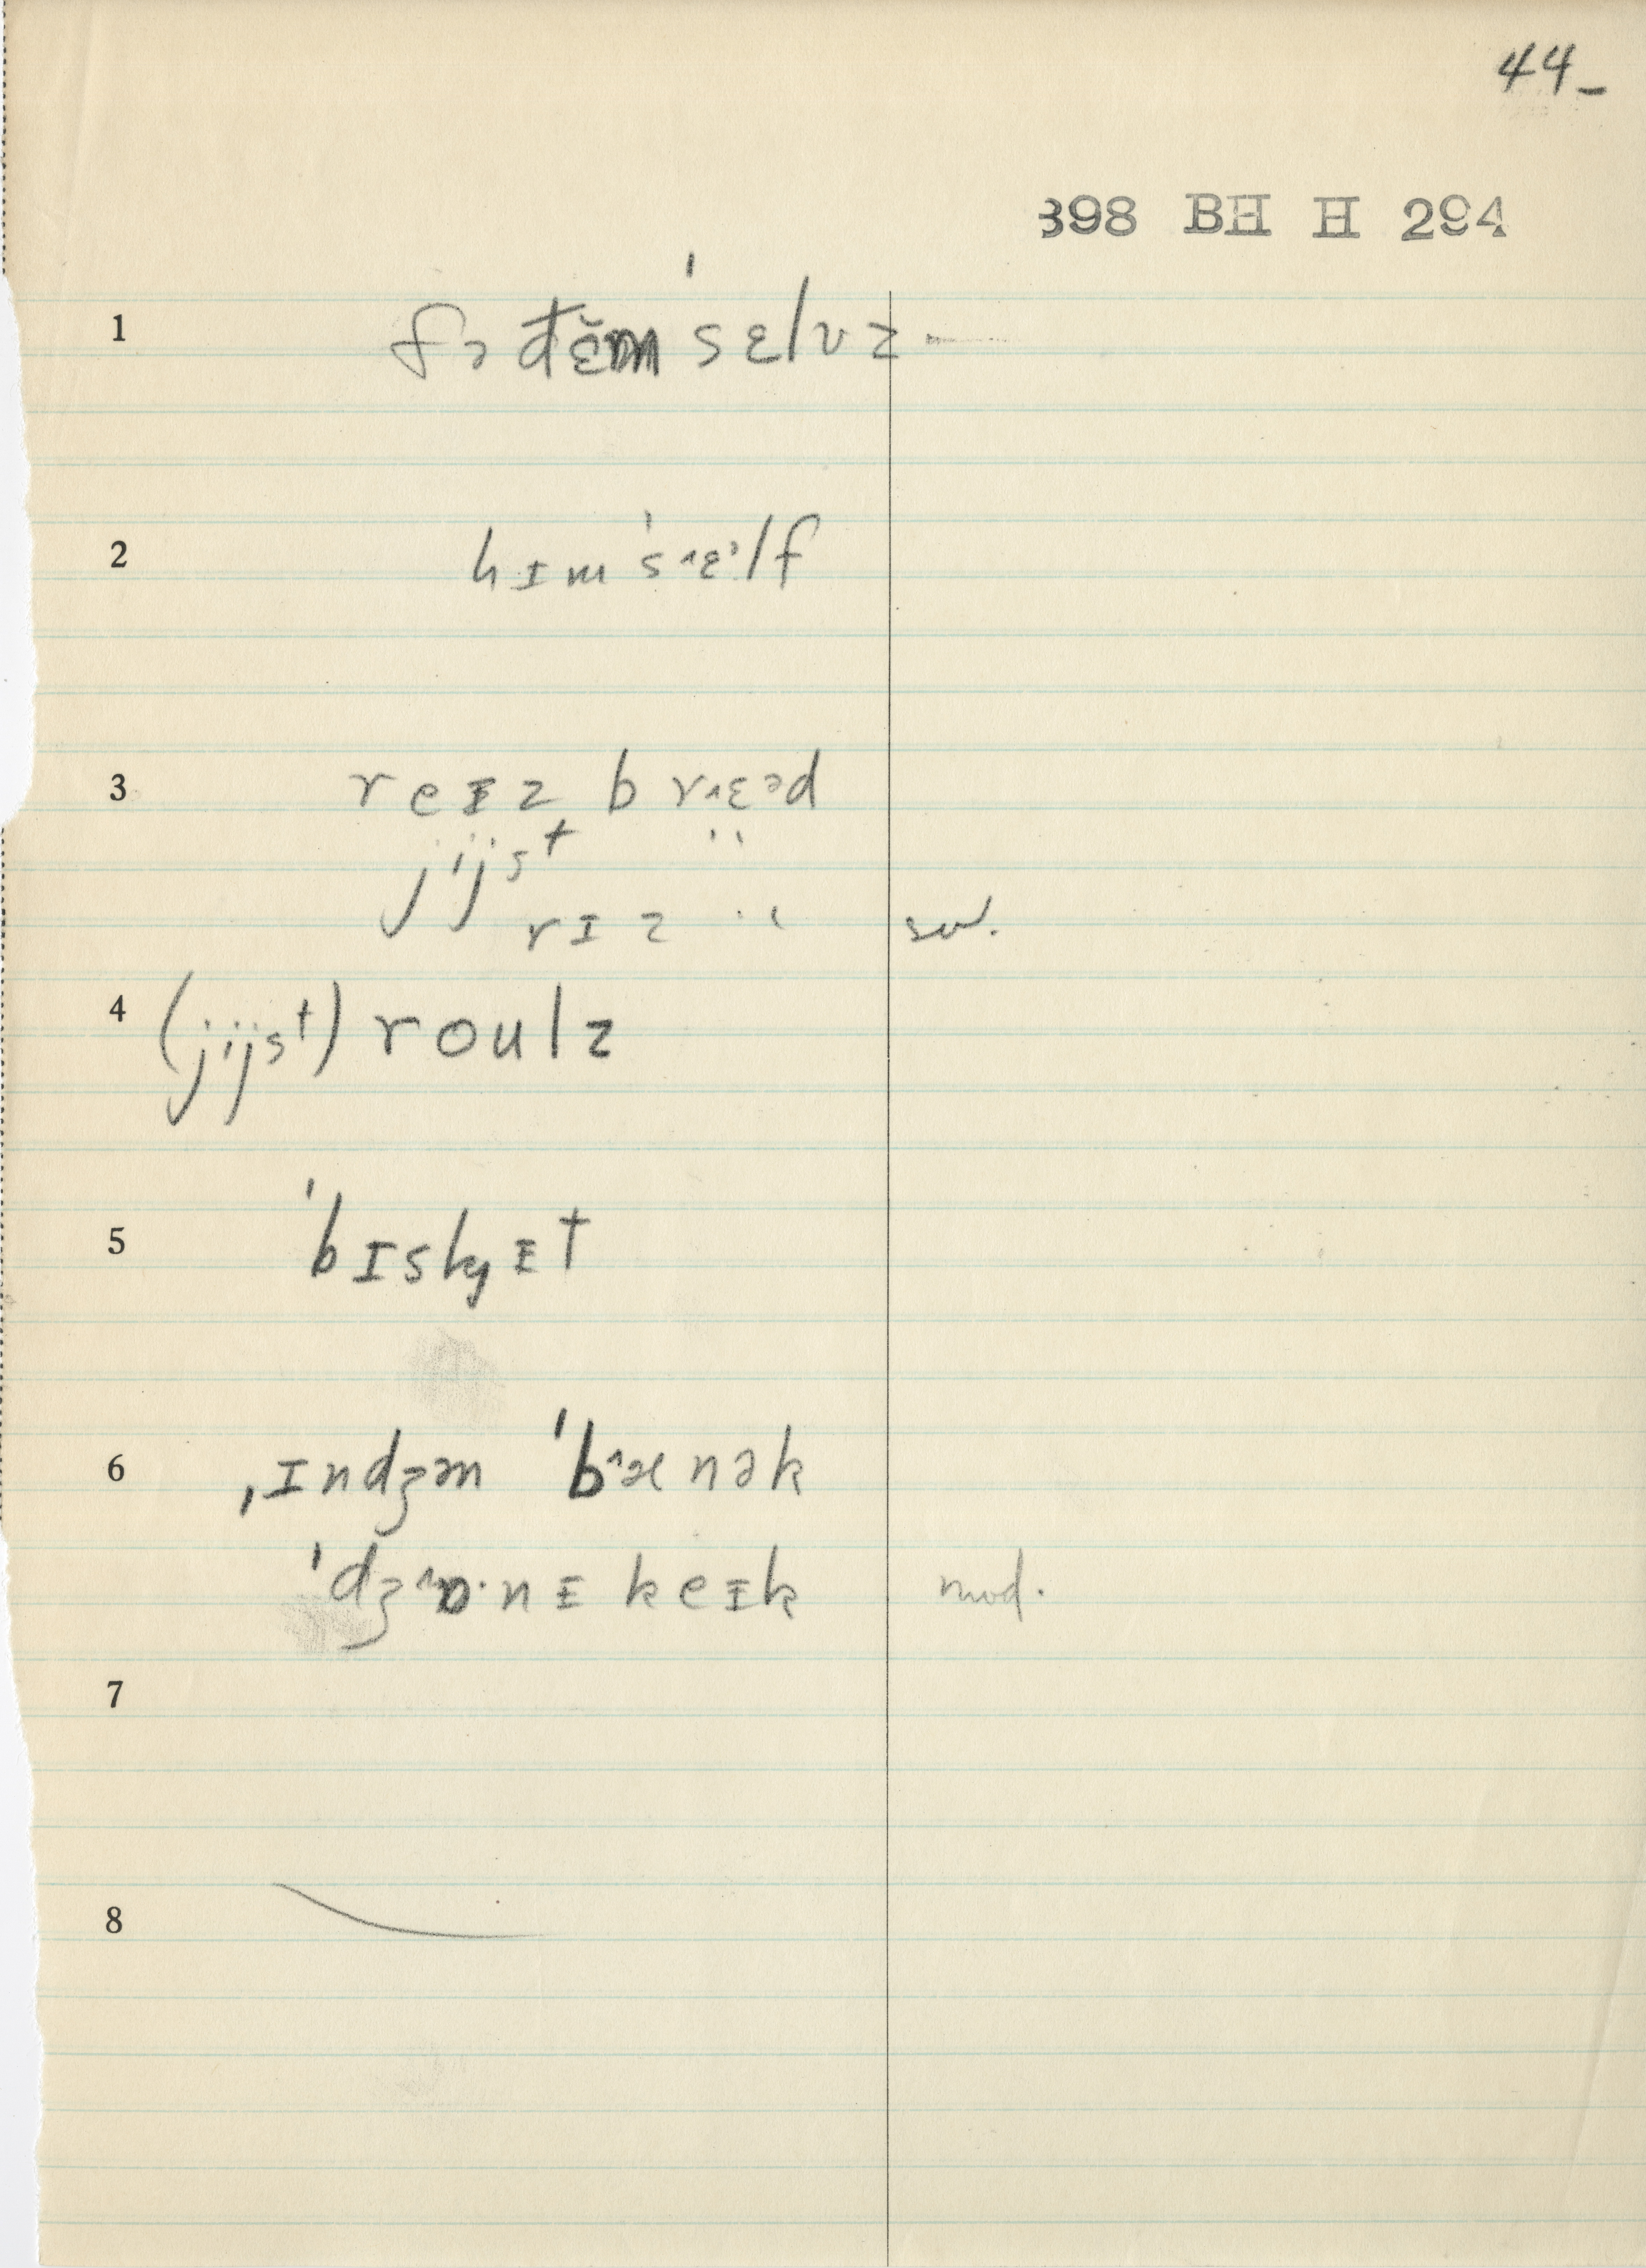 44-
398 BH H 294
1 fɚ đɛ̆m ˈsɛlvz-
2 hɪm ˈs˄ɛᵊlf
3 reᵻz br˄ɛᵊd
jijst "
rɪz " sw.
4 (jijst) roulz
5 ˈbɪskᵻt
6 ˌɪndʒən ˈb˄ænək
ˈdʒ˄ɒ·nᵻ keᵻk mod.
7
8